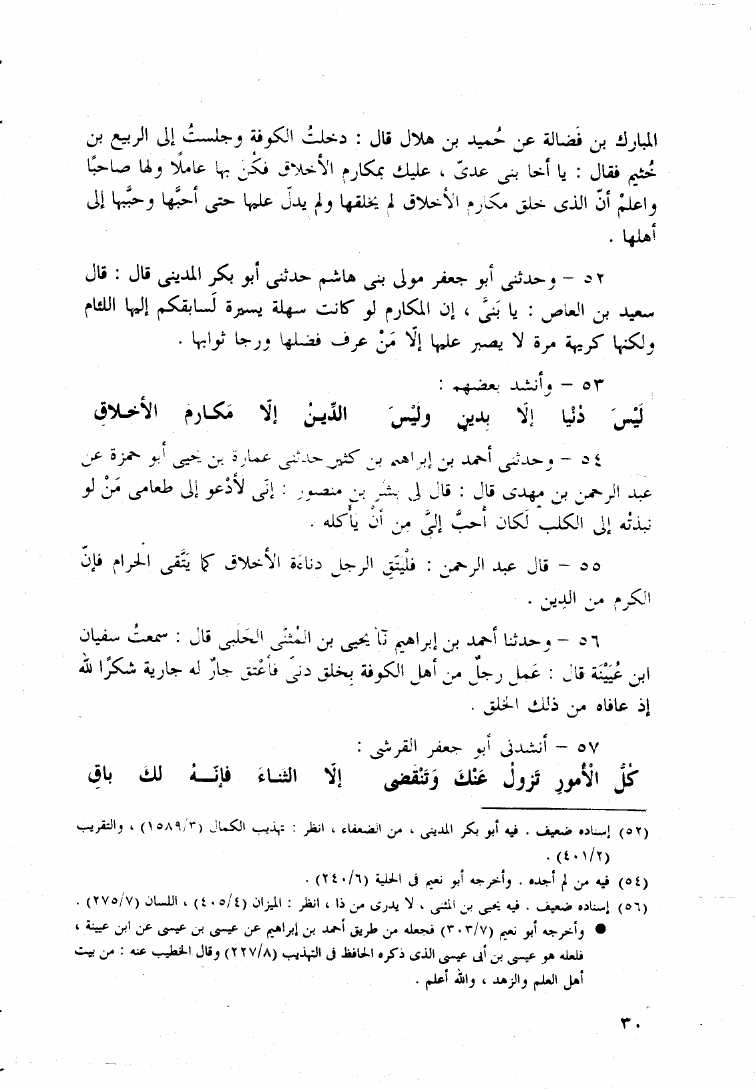 المبارك بن فَضالة عن حُميد بن هلال قال : دخلتُ الكوفة وجلستُ إلى الربيع بن
خُثيم فقال : يا أخا بنى عدىّ ، عليك بمكارم الأخلاق فكُن بها عاملًا ولها صاحبًا
واعلمْ أنّ الذى خلق مكارم الأخلاق لم يخلقها ولم يدلّ عليها حتى أحبَّها وحبَّبها إلى
أهلها .
٥٢ – وحدثنى أبو جعفر مولى بنى هاشم حدثنى أبو بكر المدينى قال : قال
سعيد بن العاص : يا بَنىَّ ، إن المكارم لو كانت سهلة يسيرة لَسابقكم إليها اللئام
ولكنها كريهة مرة لا يصبر عليها إلّا مَنْ عرف فضلها ورجا ثوابها .
٥٣ – وأنشد بعضهم :
لَيْسَ دُنْيا إلّا بِدينٍ ولَيْسَ الدِّينُ إلّا مَكـارمَ الأخـلاقِ
٥٤ – وحدثنى أحمد بن إبراهيم بن كثير حدثنى عمارة بن يحيى أبو حمزة عن
عبد الرحمن بن مهدى قال : قال لى بشر بن منصور : إنّى لأدْعو إلى طعامى مَنْ لو
نبذتُه إلى الكلب لَكان أحبَّ إلىَّ مِن أنْ يأكله .
٥٥ – قال عبد الرحمن : فلْيتَّقِ الرجل دناءة الأخلاق كما يَتَّقى الحرام فإنّ
الكرم من الدين .
٥٦ – وحدثنا أحمد بن إبراهيم نَا يحيى بن المُثنَّى الحَلَبى قال : سمعتُ سفيان
ابن عُيَيْنَة قال : عَمل رجلٌ من أهل الكوفة بِخلق دنىّ فأعْتق جارٌ له جارية شكرًا لله
إذ عافاه من ذلك الخلق .
٥٧ – أنشدنى أبو جعفر القرشى :
كُلُّ الأمورِ تَزولُ عَنْكَ وَتَنْقَضى إلّا الثناءَ فإنّـهُ لكَ باقِ
(٥٢) إسناده ضعيف . فيه أبو بكر المدينى ، من الضعفاء ، انظر : تهذيب الكمال (١٥٨٩/٣) ، والتقريب
(٤٠١/٢) .
(٥٤) فيه من لم أجده . وأخرجه أبو نعيم فى الحلية (٢٤٠/٦) .
(٥٦) إسناده ضعيف . فيه يحيى بن المثنى ، لا يدرى من ذا ، انظر : الميزان (٤٠٥/٤) ، اللسان (٢٧٥/٧) .
● وأخرجه أبو نعيم (٣٠٣/٧) فجعله من طريق أحمد بن إبراهيم عن عيسى بن عيسى عن ابن عيينة ،
فلعله هو عيسى بن أبى عيسى الذى ذكره الحافظ فى التهذيب (٢٢٧/٨) وقال الخطيب عنه : من بيت
أهل العلم والزهد ، والله أعلم .
٣٠